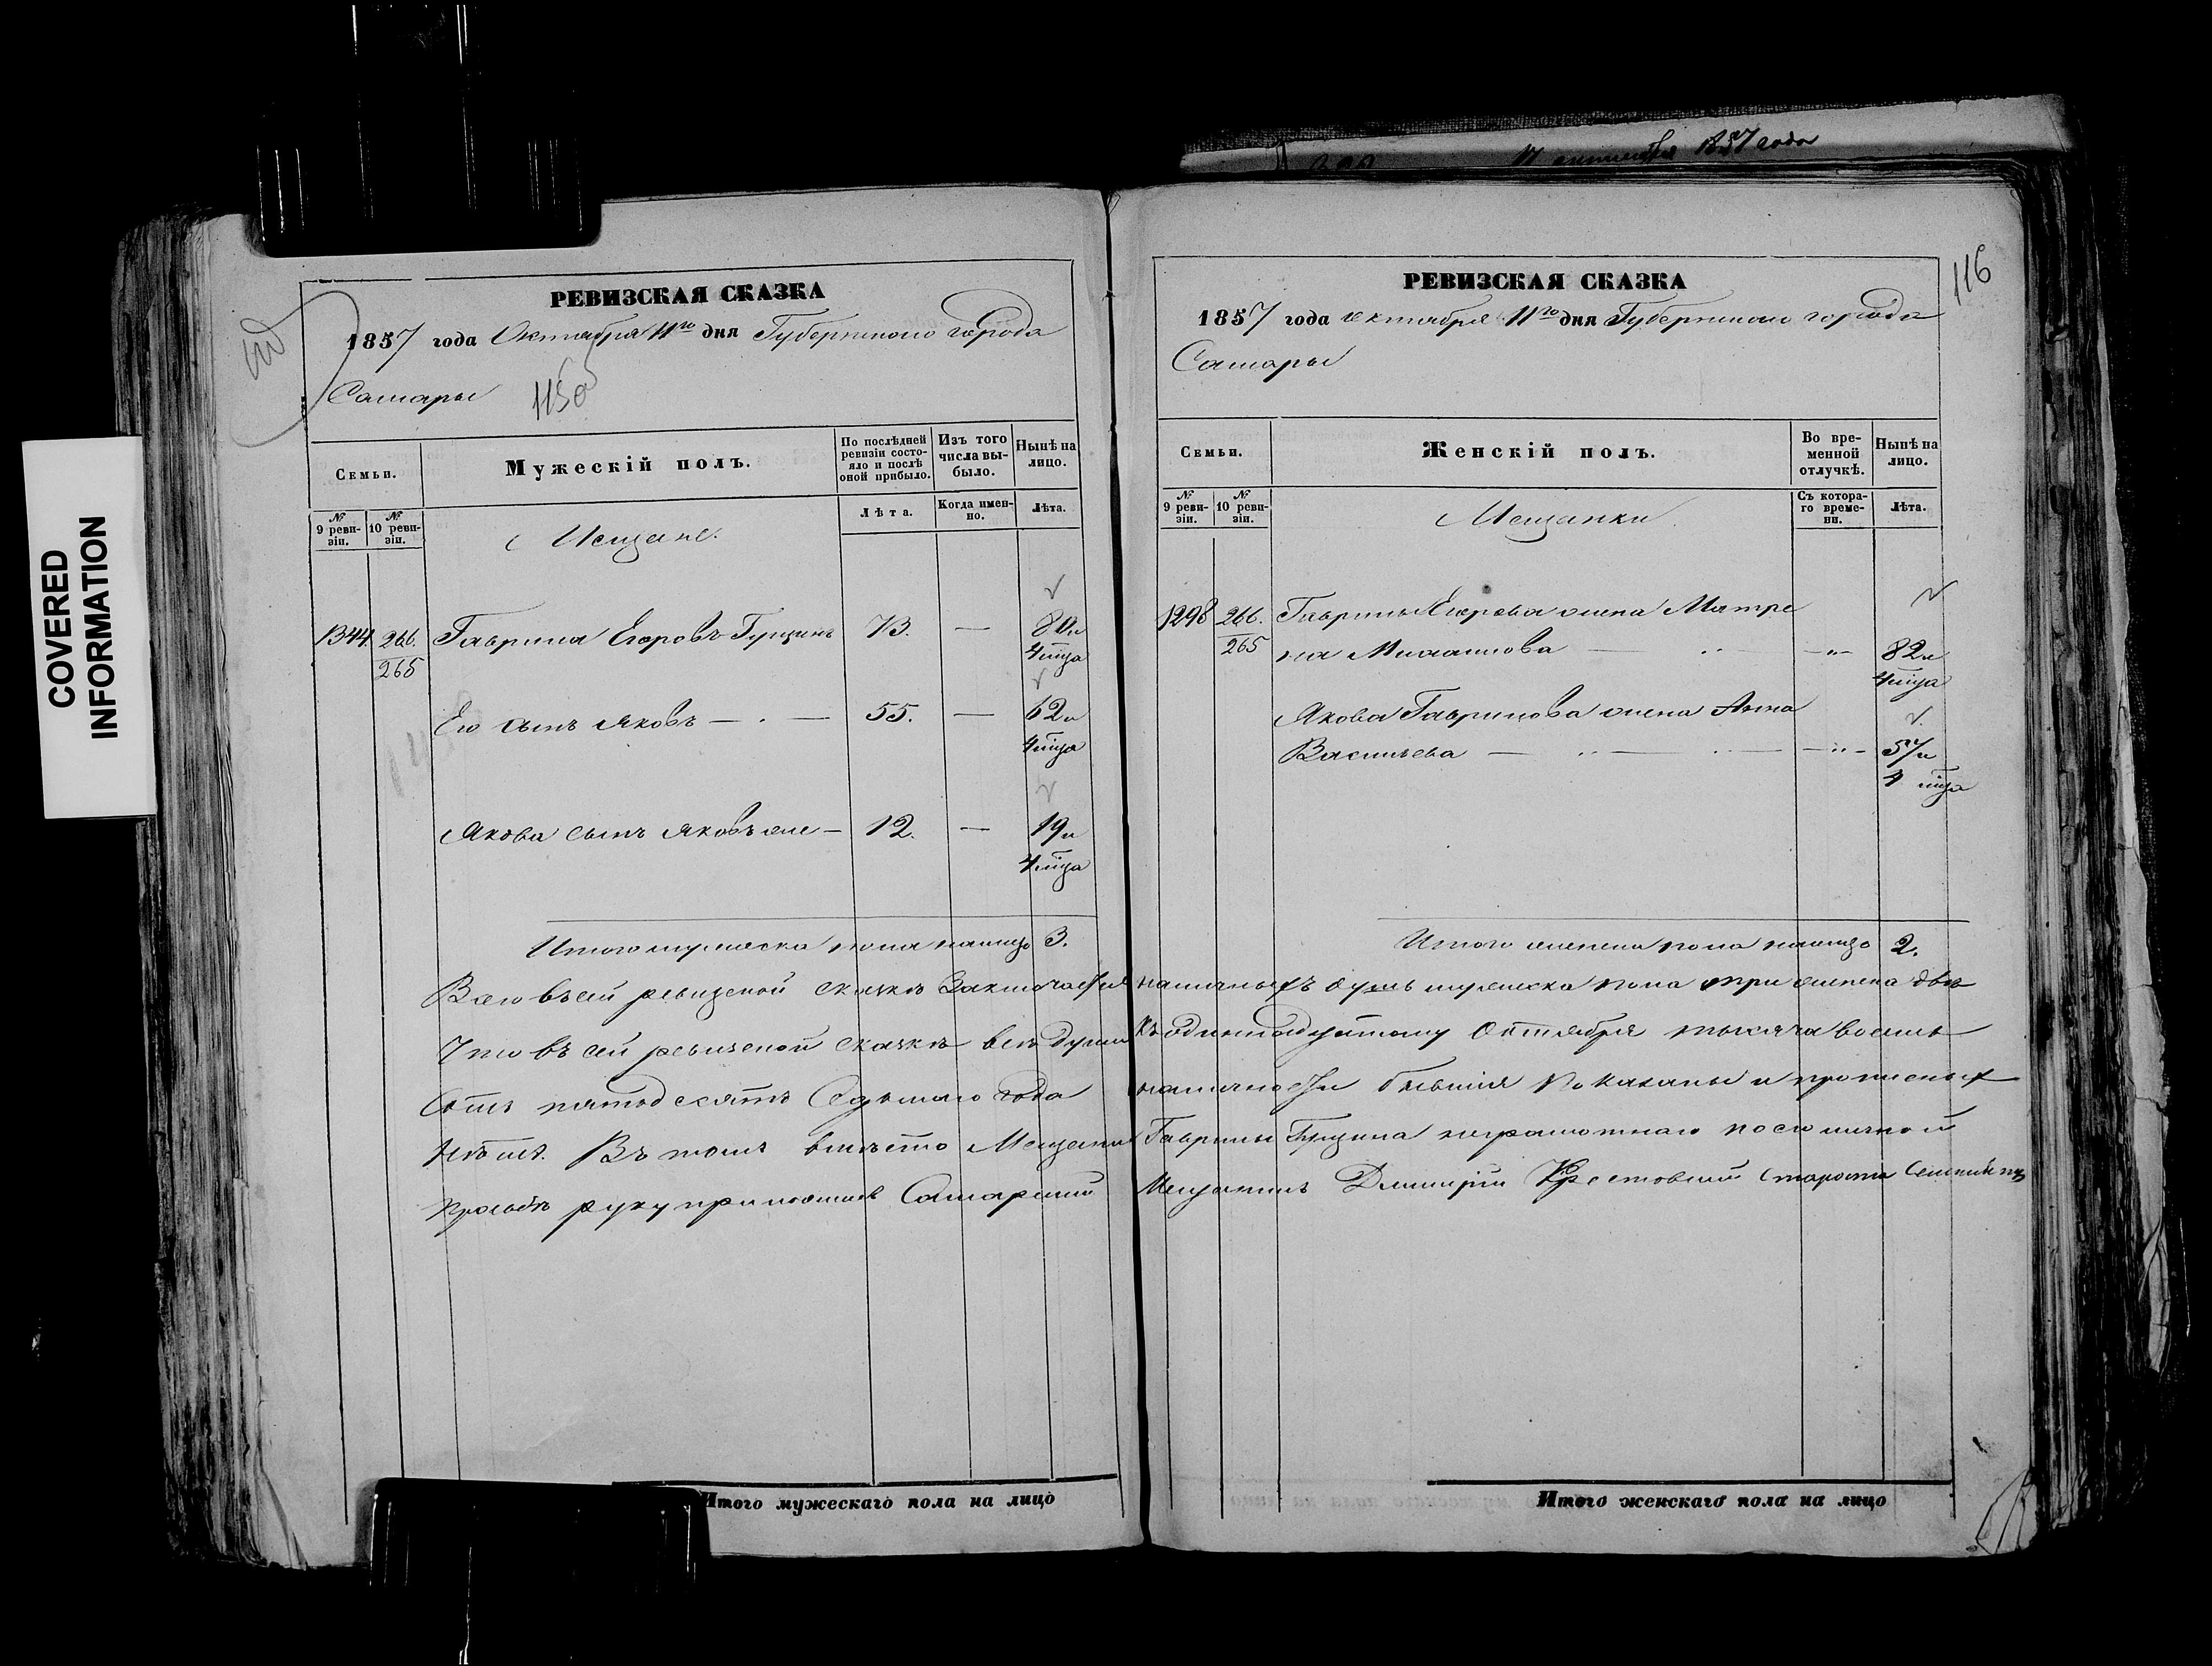 COVERED
INFORMATION
РЕВИЗСКАЯ СКАЗКА
1857 года Октября 11го дня Губернскаго города
Самары
115об
Семьи.
Мужескій полъ.
По послѣдней ревизіи состояло и послѣ оной прибыло.
Изъ того числа выбыло.
Нынѣ на лицо.
№ 9 ревизіи.
№ 10 ревизіи.
Мещане.
Лѣта.
Когда именно.
Лѣта.
1344. 266. Гаврила Егоровъ Гущинъ 73. — 80 л
265 4 м̃ца
Его сынъ Яковъ — . — 55. — 62 л
4 м̃ца
Якова сынъ Яковъ же — 12. — 19 л
4 м̃ца
Итого мужеска пола налицо 3.
Итого мужескаго пола на лицо
116
РЕВИЗСКАЯ СКАЗКА
1857 года октября 11го дня Губернскаго города
Самары
Семьи.
Женскій полъ.
Во временной отлучкѣ.
Нынѣ на лицо.
№ 9 ревизіи.
№ 10 ревизіи.
Мещанки
Съ котораго времени.
Лѣта.
1298 266. Гаврилы Егорова жена Матре
265 на — 82 л
4 м̃ца
Якова Гаврилова жена Анна
Васильева — 57 л
4 м̃ца
Итого женска пола налицо 2.
Всего въ сей ревизской сказкѣ Заключается наличныхъ душъ мужеска пола три женска двѣ
Что въ сей ревизской сказкѣ всѣ души къ одинадцатому Октября тысяча восемь
Сотъ пятьдесятъ Седьмаго года наличности бывшія показаны и прописныхъ
нѣтъ. Въ томъ вмѣсто Мещанина Гаврилы Гущина неграмотнаго по его личной
прозьбѣ руку приложилъ Самарскій Мещанинъ Дмитрій Крестовскій Староста
Итого женскаго пола на лицо